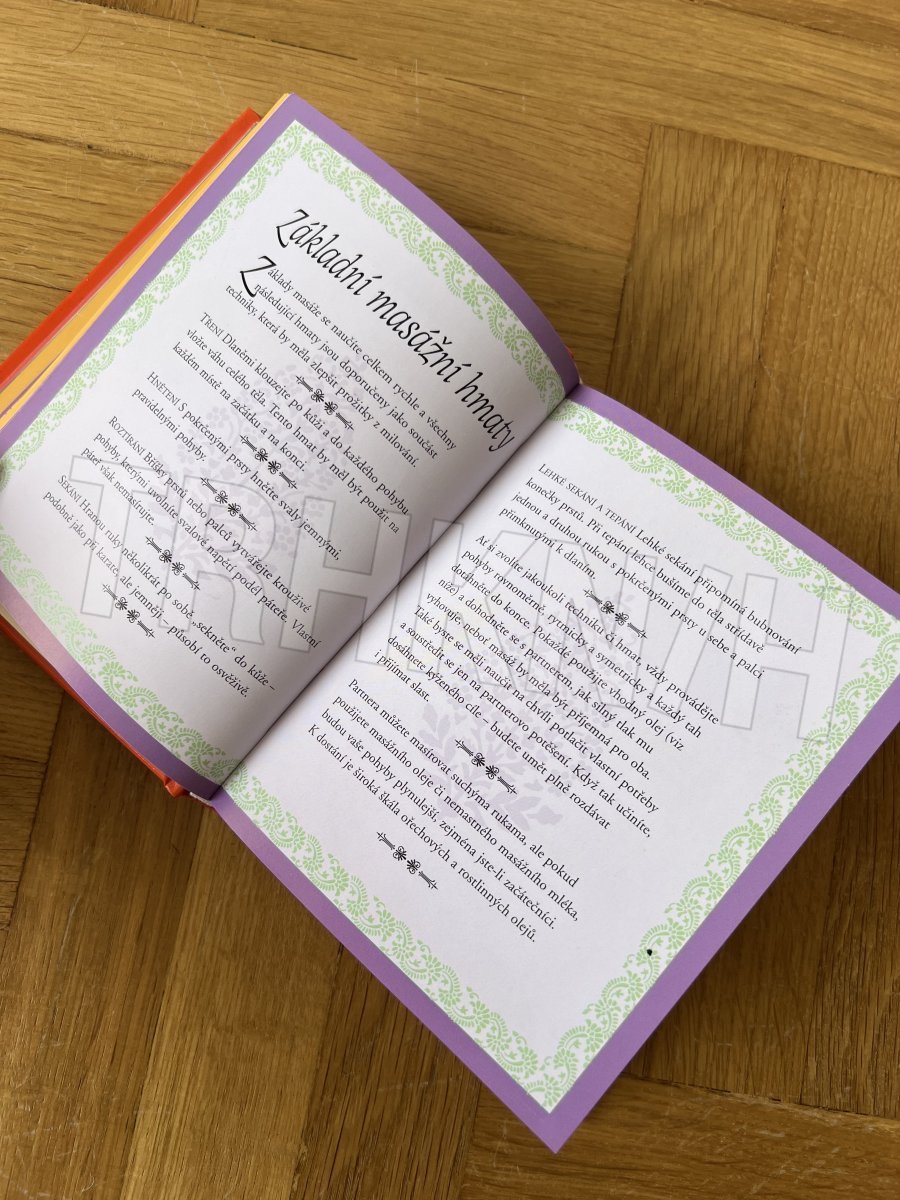 Základní masážní hmaty
Základy masáže se naučíte celkem rychle a všechny
následující hmaty jsou doporučeny jako součást
techniky, která by měla zlepšit prožitky z milování.
TŘENÍ Dlaněmi klouzejte po kůži a do každého pohybu
vložte váhu celého těla. Tento hmat by měl být použit na
každém místě na začátku a na konci.
HNĚTENÍ S pokrčenými prsty hněťte svaly jemnými,
pravidelnými pohyby.
ROZTÍRÁNÍ Bříšky prstů nebo palců vytvářejte krouživé
pohyby, kterými uvolníte svalové napětí podél páteře. Vlastní
páteř však nemasírujte.
SEKÁNÍ Hranou ruky několikrát po sobě „sekněte“ do kůže –
podobně jako při karate, ale jemněji – působí to osvěživě.
LEHKÉ SEKÁNÍ A TEPÁNÍ Lehké sekání připomíná bubnování
konečky prstů. Při tepání lehce bušíme do těla střídavě
jednou a druhou rukou s pokrčenými prsty u sebe a palci
přimknutými k dlaním.
Ať si zvolíte jakoukoli techniku či hmat, vždy provádějte
pohyby rovnoměrně, rytmicky a symetricky a každý tah
dotáhněte do konce. Pokaždé použijte vhodný olej (viz
níže) a dohodněte se s partnerem, jak silný tlak mu
vyhovuje, neboť masáž by měla být příjemná pro oba.
Také byste se měli naučit na chvíli potlačit vlastní potřeby
a soustředit se jen na partnerovo potěšení. Když tak učiníte,
dosáhnete kýženého cíle – budete umět plně rozdávat
i přijímat slast.
Partnera můžete masírovat suchýma rukama, ale pokud
použijete masážního oleje či nemastného masážního mléka,
budou vaše pohyby plynulejší, zejména jste-li začátečníci.
K dostání je široká škála ořechových a rostlinných olejů.